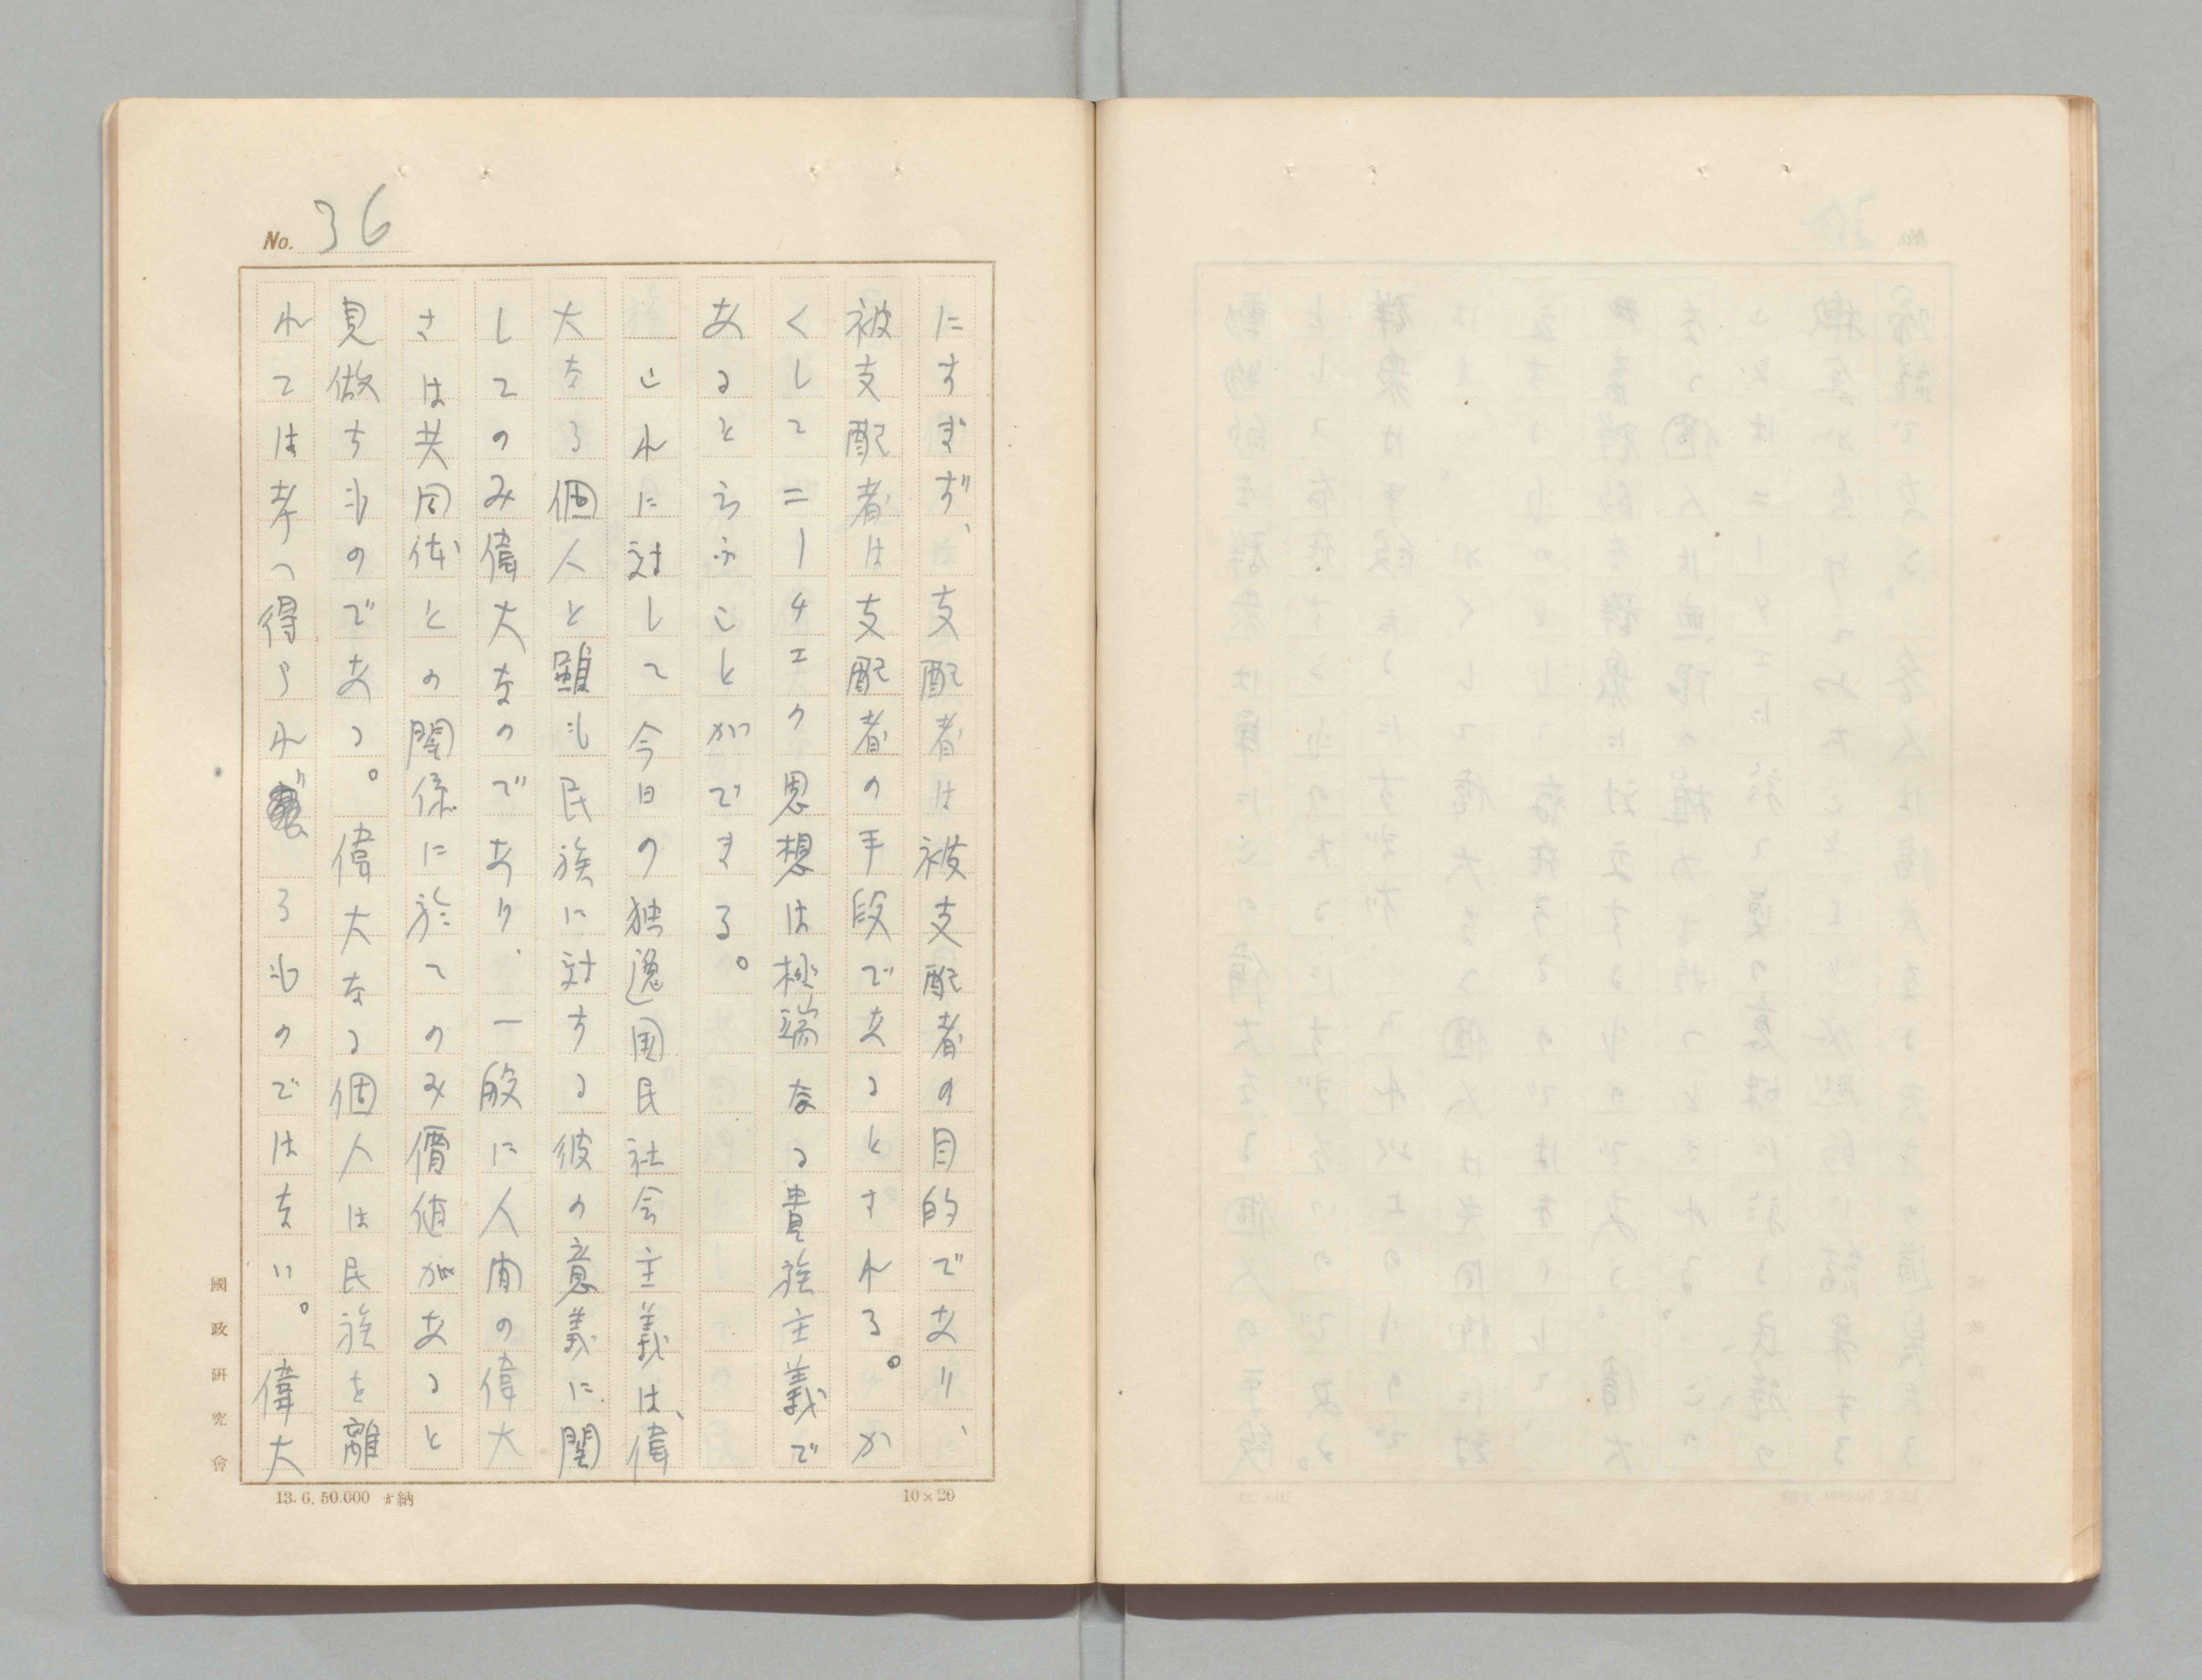 No. 36
にすぎず、支配者は被支配者の目的であり、
被支配者は支配者の手段であるとされる。か
くしてニーチエの思想は極端なる貴族主義で
あるとらふことができる。
これに対して今日の独逸国民社会主義は、偉
大なる個人と雖も民族に対する彼の意義に関
してのみ偉大なのであり、一般に人間の偉大
さは共同体との関係に於てのみ價値があると
見做すものである。偉大なる個人は民族を離
れては考へ得られるものではない。偉大
國政研究會
13.6.50.000 納
10×20